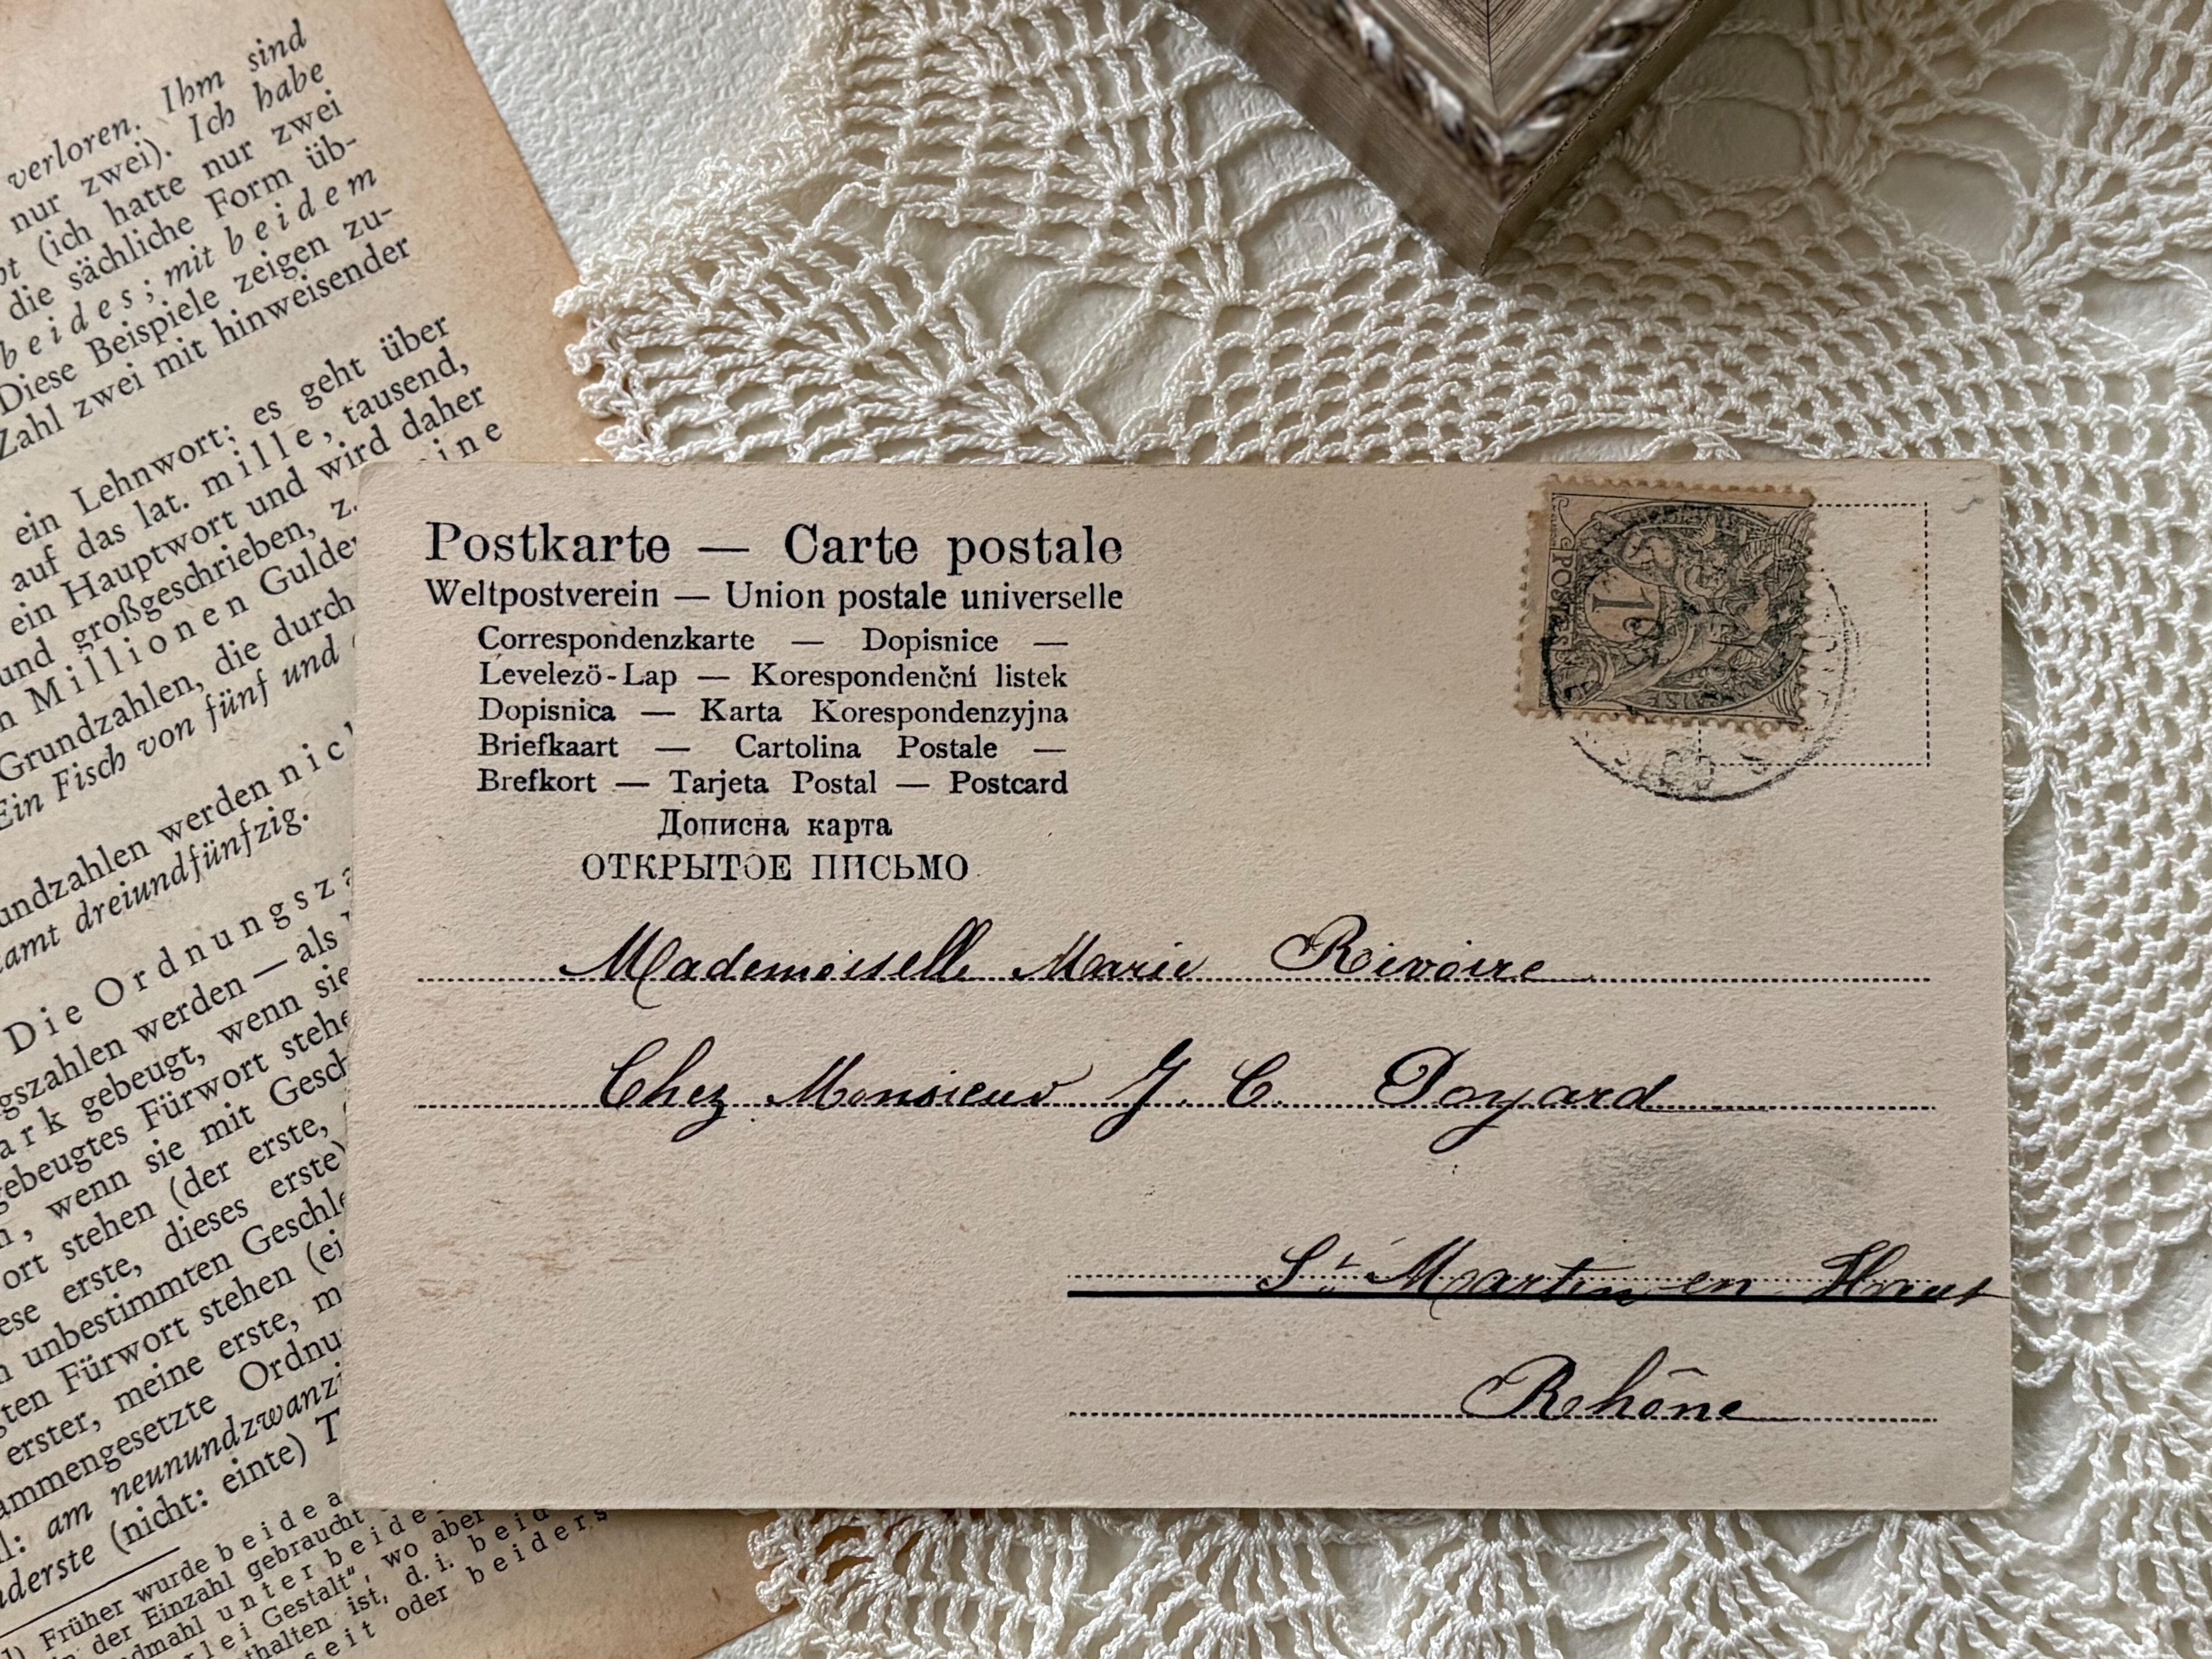 verloren. Ihm sind
nur zwei). Ich habe
(ich hatte nur zwei
die sächliche Form üb-
beides; mit beidem
Diese Beispiele zeigen zu-
Zahl zwei mit hinweisender
ein Lehnwort; es geht über
auf das lat. mille, tausend,
ein Hauptwort und wird daher
und großgeschrieben, z.
Millionen
Grundzahlen, die durch
Ein Fisch von fünf und
werden
dreiundfünfzig.
Die
werden — als
gebeugt, wenn sie
Fürwort
wenn sie mit
ort stehen (der erste,
erste, dieses erste)
unbestimmten
Fürwort stehen
erster, meine erste,
am
(nicht: einte)
1) Früher wurde
der Einzahl gebraucht
Gestalt", wo aber
ist, d. i.
oder beiders
Postkarte — Carte postale
Weltpostverein — Union postale universelle
Correspondenzkarte — Dopisnice —
Levelezö-Lap — Korespondenční listek
Dopisnica — Karta Korespondenzyjna
Briefkaart — Cartolina Postale —
Brefkort — Tarjeta Postal — Postcard
Дописна карта
ОТКРЫТОЕ ПИСЬМО
POSTES
Mademoiselle Marie Rivoire
Chez Monsieur J. C. Poyard
St Martin en Haut
Rhône